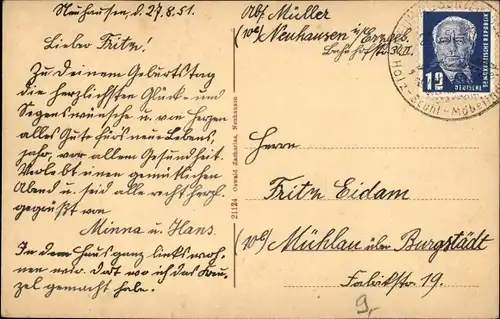 Neuhausen, d. 27.8.51.
Lieber Fritz!
Zu Deinem Geburtstag
die herzlichsten Glück- und
Segenswünsche u. von Herzen
alles Gute fürs neue Lebens,
jahr, vor allem Gesundheit.
Verlebt einen gemütlichen
Abend u. seid alle recht herzl.
gegrüßt von
Minna u. Hans.
In dem Haus ganz links woh,
nen wir. Dort wo ich das Kreu,
zel gemacht habe.
21124 Oswald Zacharias, Neuhausen
Abs. Müller
(10b) Neuhausen i/Erzgeb.
Bahnhofstr. 34II
12
DEUTSCHE
DEMOKRATISCHE REPUBLIK
Holz-Stuhl-Möbelind
Herrn
Fritz Eidam
(10b) Mühlau über Burgstädt
Fabrikstr. 19.
9,-